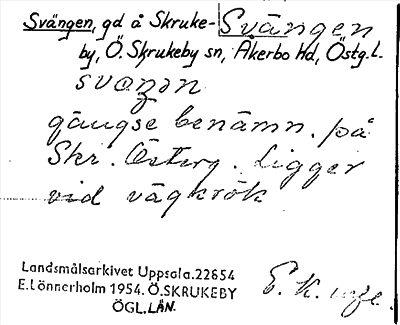 Svängen, gd å Skruke- Svängen
by, Ö. Skrukeby sn, Åkerbo Hd, Östg.L.
gängse benämn. på
Skr. Österg. Ligger
vid vägkrök
Landsmålsarkivet Uppsala. 22654
E. Lönnerholm 1954. Ö. SKRUKEBY
ÖGL. LÄN.
E. K. uge.